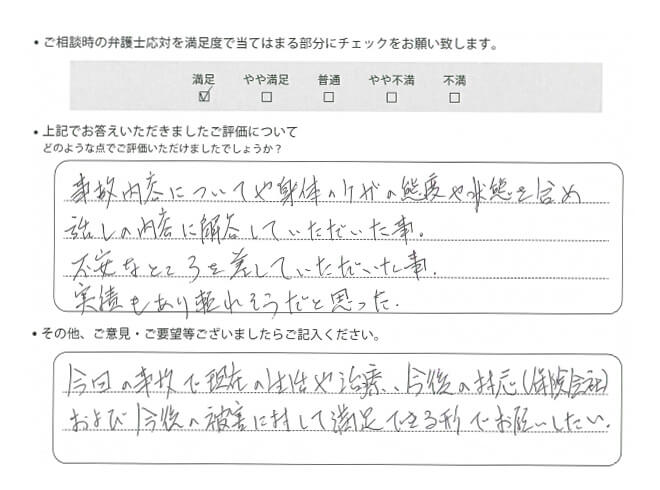 • ご相談時の弁護士応対を満足度で当てはまる部分にチェックをお願い致します。
満足 やや満足 普通 やや不満 不満
☑ □ □ □ □
• 上記でお答えいただきましたご評価について
どのような点でご評価いただけましたでしょうか？
事故内容についてや身体のケガの態度や状態を含め
話しの内容に解答していただいた事。
不安なところを差していただいた事。
実績もあり頼れそうだと思った。
• その他、ご意見・ご要望等ございましたらご記入ください。
今回の事故で現在の生活や治療、今後の対応(保険会社)
および今後の被害に対して満足できる形でお願いしたい。